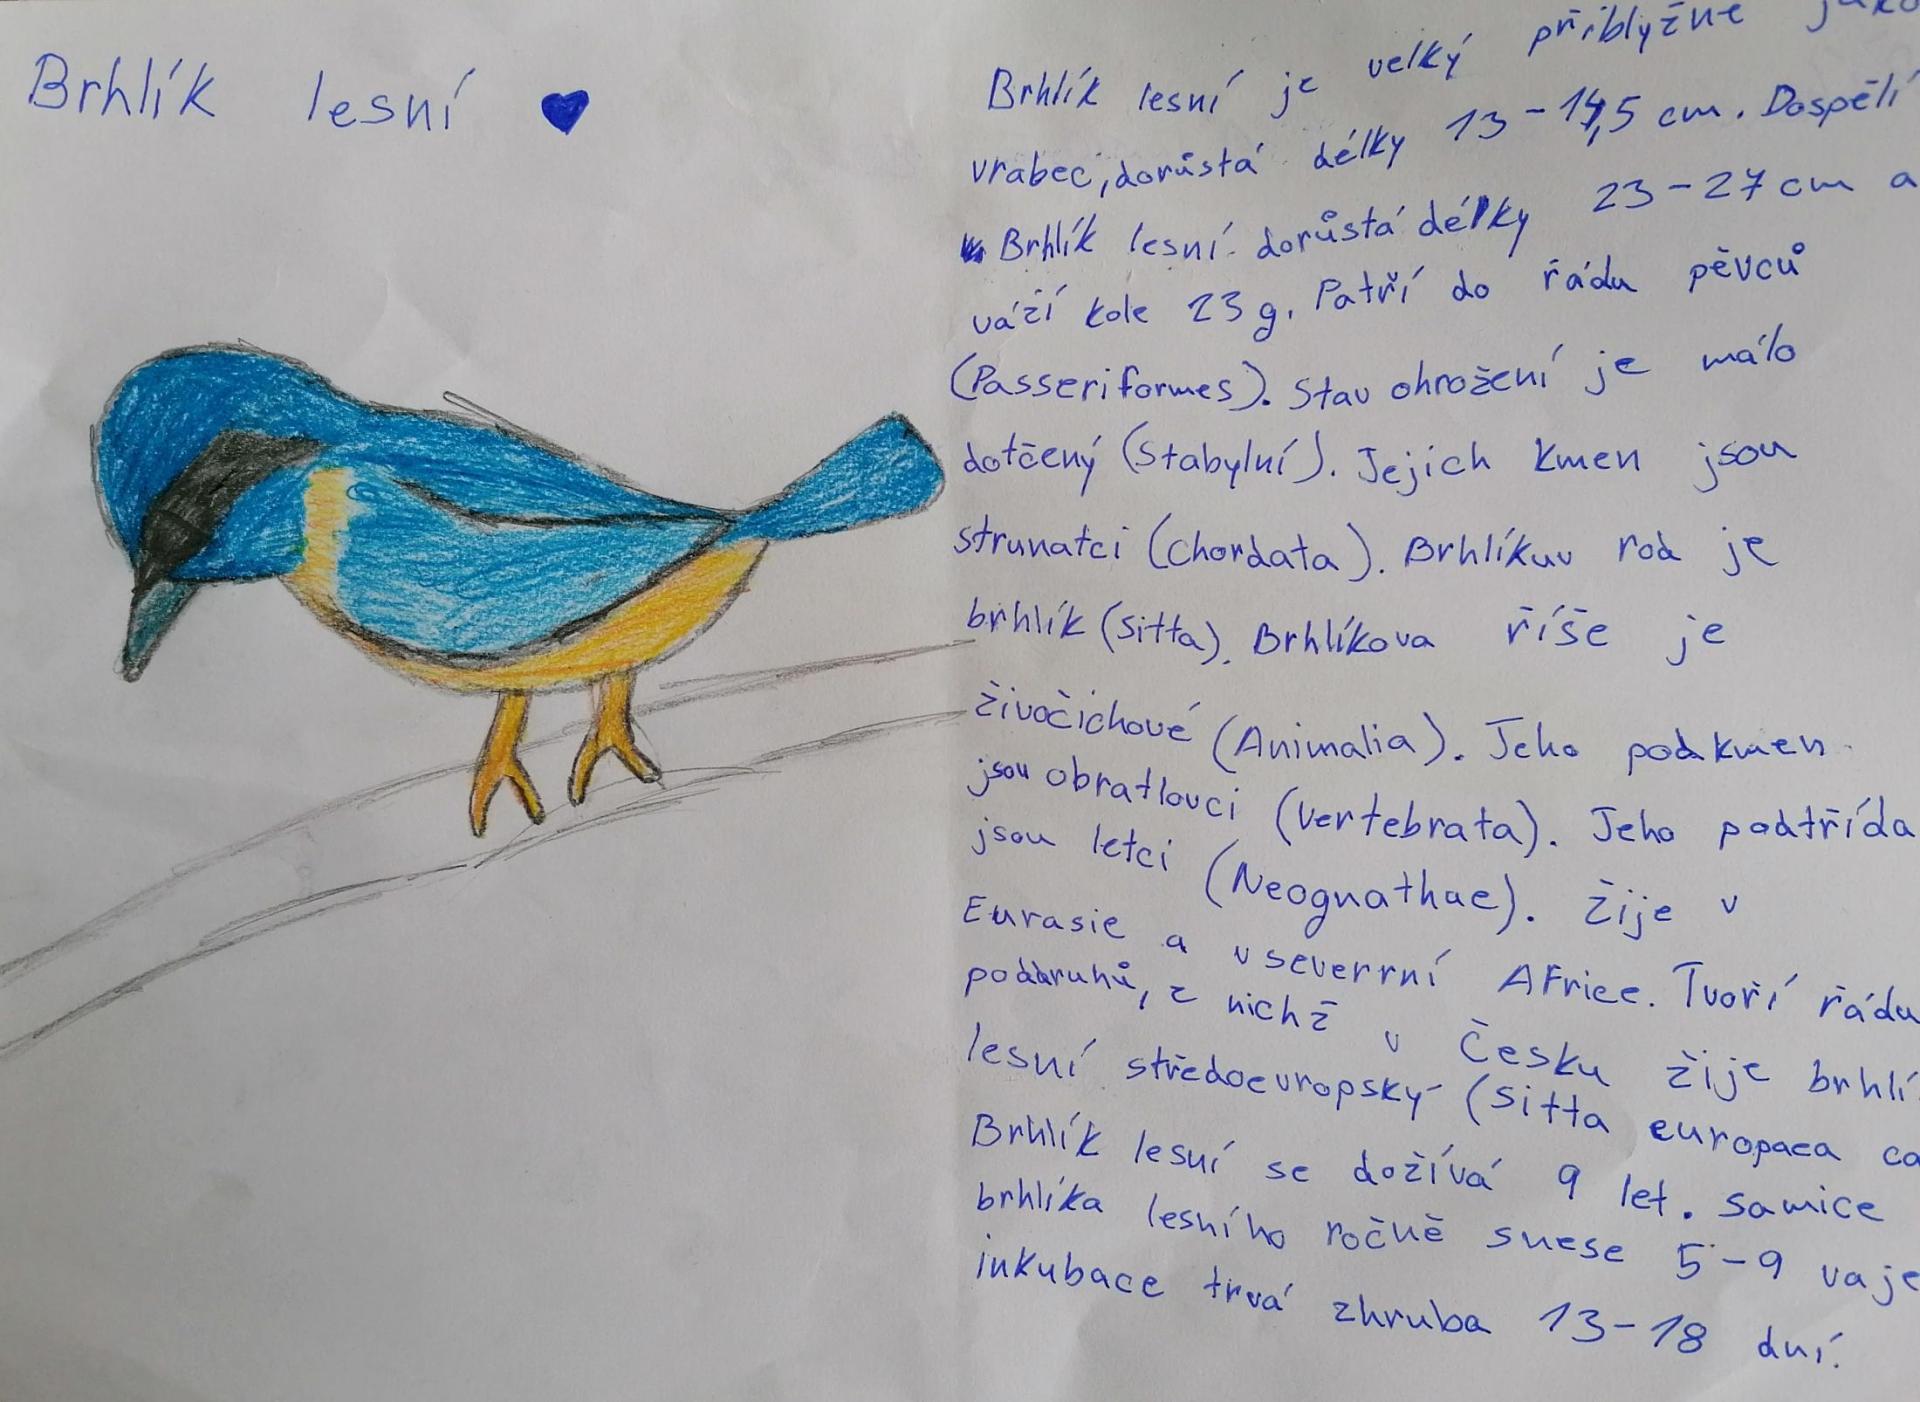 Brhlík lesní
Brhlík lesní je velký přiblyžne jako
vrabec, dorůstá délky 13-14,5 cm. Dospělí
Brhlík lesní dorůstá délky 23-27 cm a
váží kole 23 g. Patří do řádu pěvců
(Passeriformes). Stav ohrožení je málo
dotčený (Stabylní). Jejich kmen jsou
strunatci (Chordata). Brhlíkuv rod je
brhlík (Sitta). Brhlíkova říše je
živočichové (Animalia). Jeho podkmen
jsou obratlovci (Vertebrata). Jeho podtřída
jsou letci (Neognathae). Žije v
Eurasie a v severrní Africe. Tvoří řádu
poddruhů, z nichž v Česku žije brhlí
lesní středoevropský (Sitta europaea ca
Brhlík lesní se dožívá 9 let. samice
brhlíka lesního ročně snese 5-9 vaje
inkubace trvá zhruba 13-18 dní.